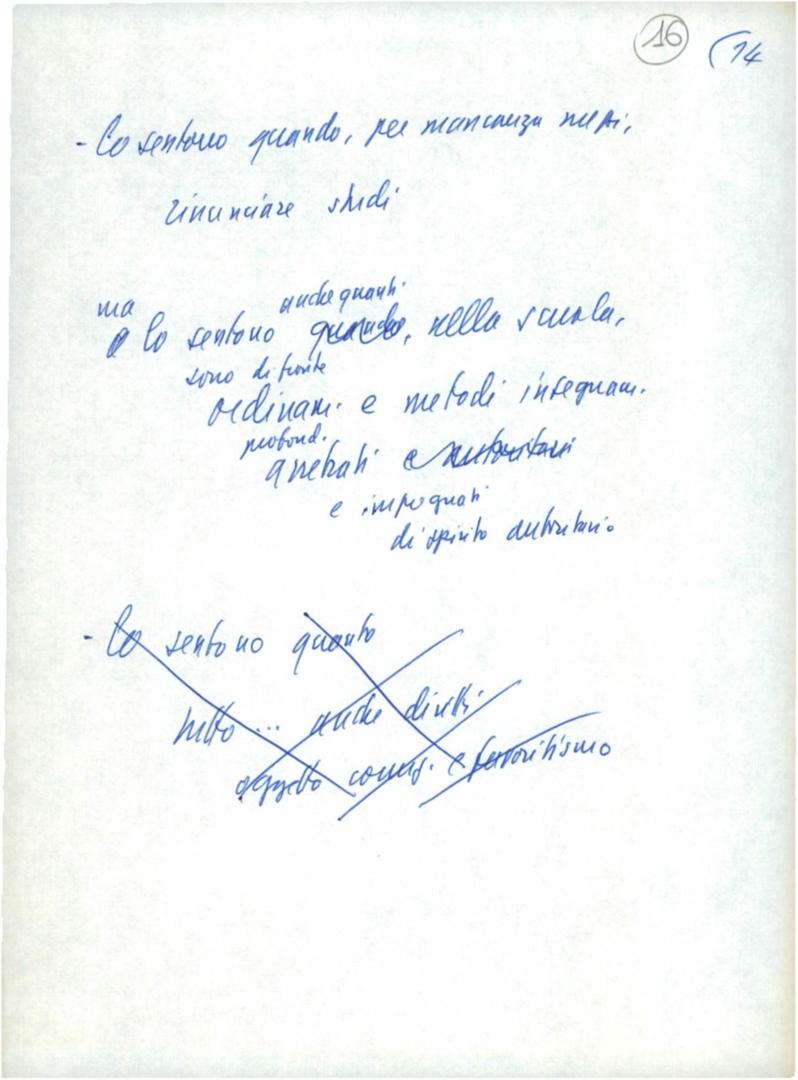 16 (14
- Lo sentono quando, per mancanza mezzi,
rinunciare studi
ma anche quanti
e lo sentono quando, nella scuola,
sono di fronte
ordinam. e metodi insegnam.
profond.
arretrati e autoritari
e impregnati
di spirito autoritario
- Lo sentono quanto
tutto ... anche diritti
oggetto comm. e favoritismo